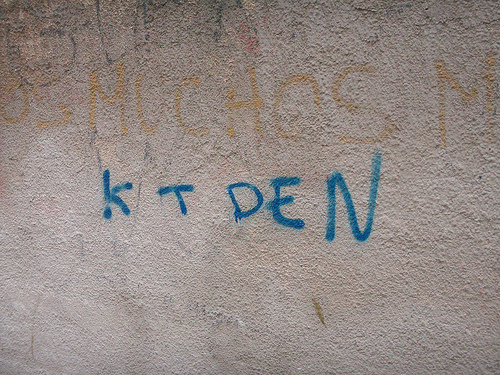 OS MUCHOS M
K T DEN